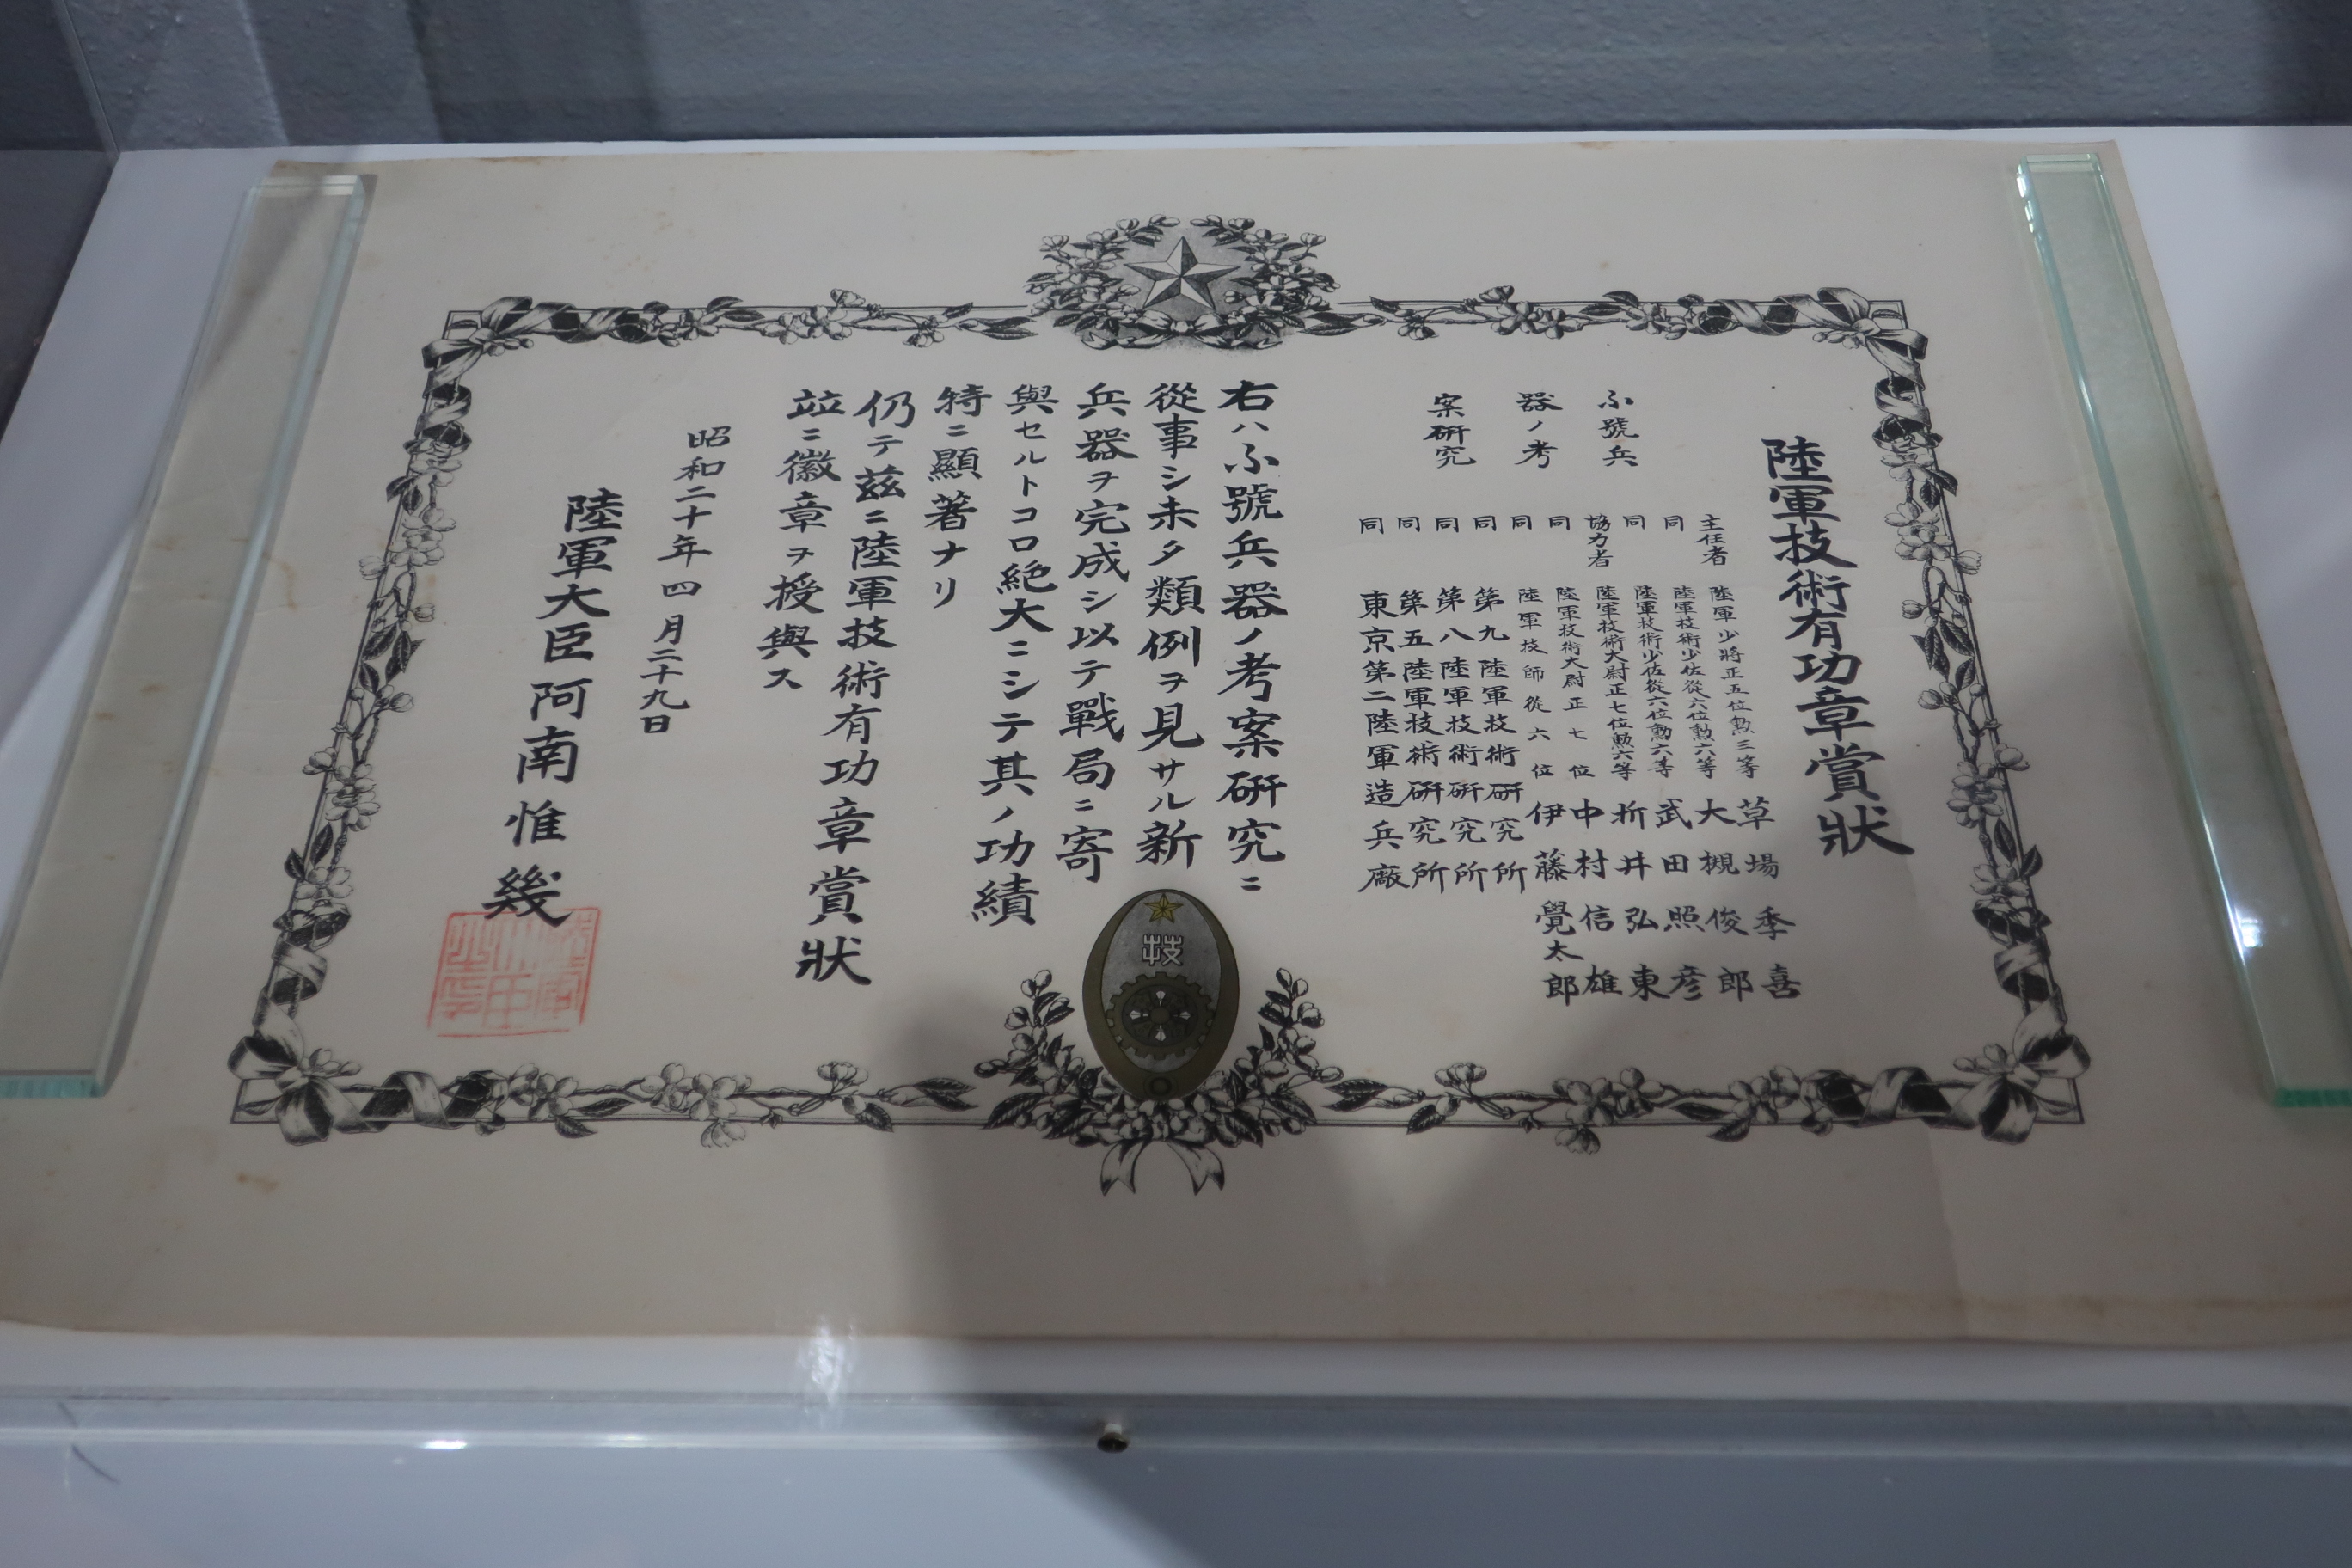 陸軍技術有功章賞狀
ふ號兵
器ノ考
案研究
主任者 陸軍少將正五位勲三等 草場季喜
同 陸軍技術少佐從六位勲六等 大槻俊郎
同 陸軍技術少佐從六位勲六等 武田照彦
協力者 陸軍技術大尉正七位勲六等 折井弘東
同 陸軍技術大尉正七位 中村信雄
同 陸軍技師從六位 伊藤覺太郎
同 第九陸軍技術研究所
同 第八陸軍技術研究所
同 第五陸軍技術研究所
同 東京第二陸軍造兵廠
右ハふ號兵器ノ考案研究ニ
從事シ未タ類例ヲ見サル新
兵器ヲ完成シ以テ戰局ニ寄
與セルトコロ絶大ニシテ其ノ功績
特ニ顯著ナリ
仍テ茲ニ陸軍技術有功章賞狀
竝ニ徽章ヲ授與ス
昭和二十年四月二十九日
陸軍大臣阿南惟幾
技